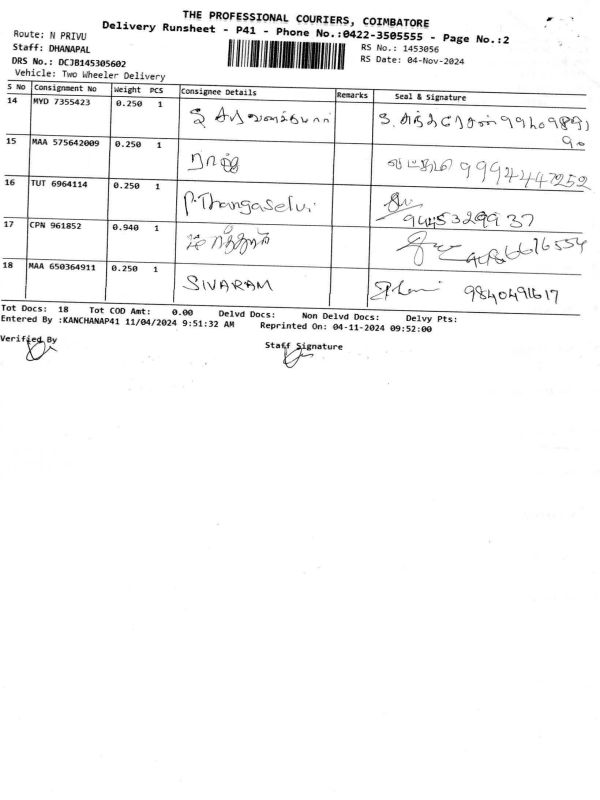 THE PROFESSIONAL COURIERS, COIMBATORE
Delivery Runsheet - P41 - Phone No.:0422-3505555 - Page No.:2
Route: N PRIVU
RS No.: 1453056
Staff: DHANAPAL
RS Date: 04-Nov-2024
DRS No.: DCJB145305602
Vehicle: Two Wheeler Delivery
S No Consignment No Weight PCS Consignee Details Remarks Seal & Signature
14 MYD 7355423 0.250 1
15 MAA 575642009 0.250 1 9994447252
16 TUT 6964114 0.250 1 P.Thangaselvi
9445329937
17 CPN 961852 0.940 1
18 MAA 650364911 0.250 1 SIVARAM 9840491617
Tot Docs: 18 Tot COD Amt: 0.00 Delvd Docs: Non Delvd Docs: Delvy Pts:
Entered By :KANCHANAP41 11/04/2024 9:51:32 AM Reprinted On: 04-11-2024 09:52:00
Verified By
Staff Signature